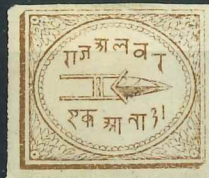 राज अलवर
एक आना १।